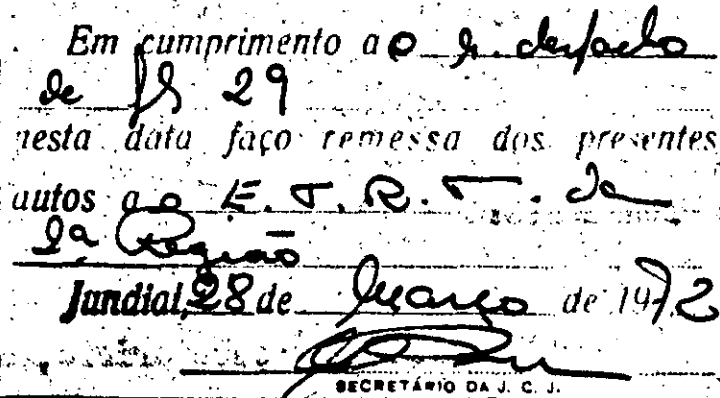 Em cumprimento ao r. despacho
de fls 29
nesta data faço remessa dos presentes
autos ao E. T. R. T. da
2ª Região
Jundiaí, 28 de Março de 1972
SECRETÁRIO DA J. C. J.